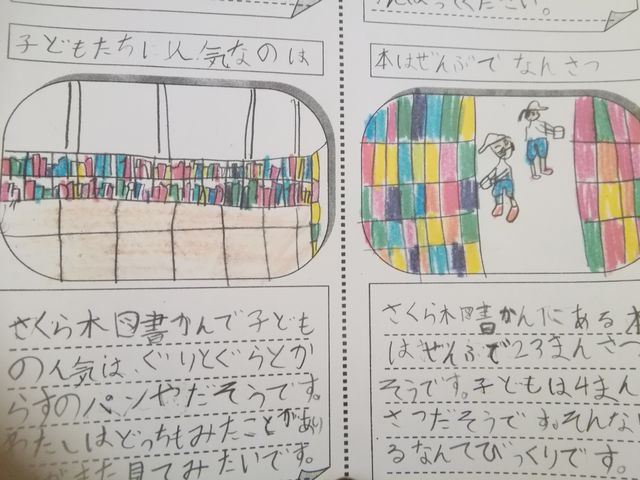 んばってください。
子どもたちに人気なのは
本はぜんぶでなんさつ
さくら木図書かんで子ども
の人気は、ぐりとぐらとか
らすのパンやだそうです。
わたしはどっちもみたことがあり
また見てみたいです。
さくら木図書かんにある本
はぜんぶで23まんさつ
そうです。子どもは4まん
さつだそうです。そんな
るなんてびっくりです。